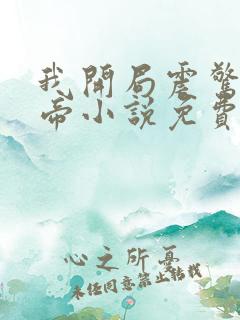 我開局震驚
帝小說免費
心之所憂
未經同意禁止轉載